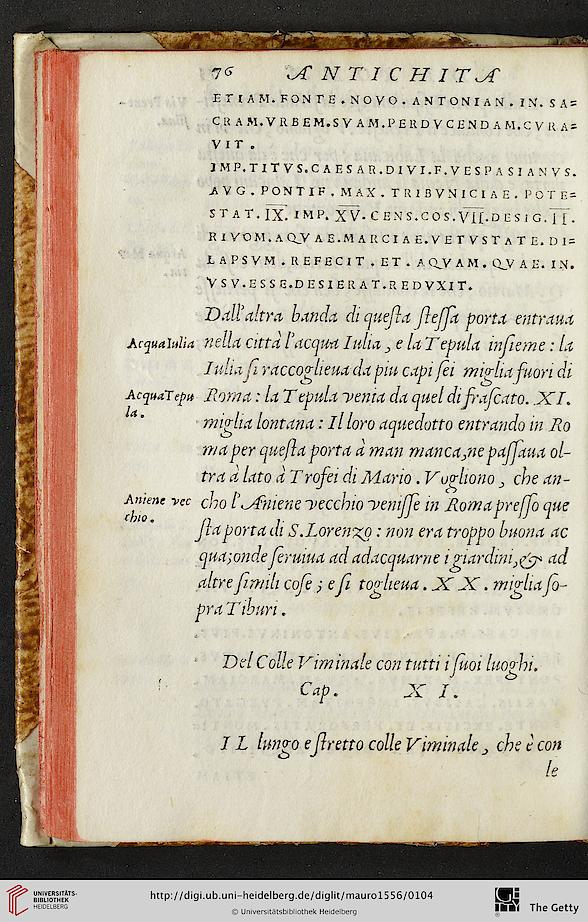 76 ANTICHITA
ETIAM. FONTE. NOVO. ANTONIAN. IN. SA=
CRAM. VRBEM. SVAM. PERDVCENDAM. CVRA=
VIT.
IMP. TITVS. CAESAR. DIVI. F. VESPASIANVS.
AVG. PONTIF. MAX. TRIBVNICIAE. POTE=
STAT. IX. IMP. XV. CENS. COS. VII. DESIG. II.
RIVOM. AQVAE. MARCIAE. VETVSTATE. DI=
LAPSVM. REFECIT. ET. AQVAM. QVAE. IN.
VSV. ESSE. DESIERAT. REDVXIT.
Dall'altra banda di queſta ſteſſa porta entraua
Acqua Iulia
nella città l'acqua Iulia, e la Tepula inſieme: la
Iulia ſi raccoglieua da piu capi ſei miglia fuori di
Acqua Tepu
la.
Roma: la Tepula venia da quel di fraſcato. XI.
miglia lontana: Il loro aquedotto entrando in Ro
ma per queſta porta à man manca, ne paſſaua ol-
tra à lato à Trofei di Mario. Vogliono, che an-
Aniene vec
chio.
cho l'Aniene vecchio veniſſe in Roma preſſo que
ſta porta di S. Lorenzo: non era troppo buona ac
qua; onde ſeruiua ad adacquarne i giardini, & ad
altre ſimili coſe; e ſi toglieua. XX. miglia ſo-
pra Tiburi.
Del Colle Viminale con tutti i ſuoi luoghi.
Cap. XI.
IL lungo e ſtretto colle Viminale, che è con
le
UNIVERSITÄTS-
BIBLIOTHEK
HEIDELBERG
http://digi.ub.uni-heidelberg.de/diglit/mauro1556/0104
© Universitätsbibliothek Heidelberg
The Getty